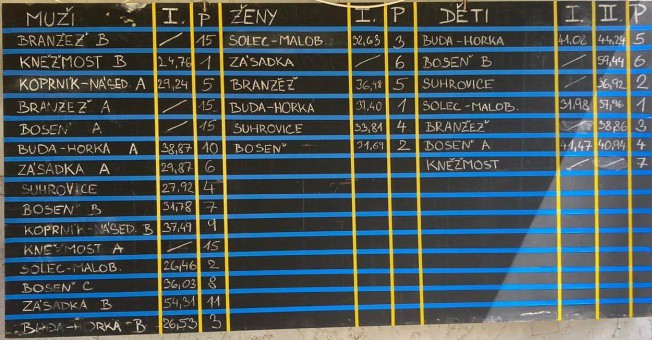 MUŽI I. P ŽENY I. P DĚTI I. II. P
BRANŽEŽ B / 15 SOLEC-MALOB. 32,63 3 BUDA-HORKA 41.08 44,24 5
KNĚŽMOST B 24,76 1 ZÁSADKA / 6 BOSEŇ B 59,44 6
KOPRNÍK-NÁSED. A 29,24 5 BRANŽEŽ 36,48 5 SUHROVICE 36,92 2
BRANŽEŽ A / 15 BUDA-HORKA 31,40 1 SOLEC-MALOB. 31,98 1
BOSEŇ A / 15 SUHROVICE 33,81 4 BRANŽEŽ / 38,86 3
BUDA-HORKA A 38,87 10 BOSEŇ 31,69 2 BOSEŇ A 41,47 40,94 4
ZÁSADKA A 29,87 6 KNĚŽMOST 7
SUHROVICE 27,92 4
BOSEŇ B 31,78 7
KOPRNÍK-NÁSED. B 37,49 9
KNĚŽMOST A / 15
SOLEC-MALOB. 26,46 2
BOSEŇ C 36,03 8
ZÁSADKA B 54,31 11
BUDA-HORKA B 26,53 3